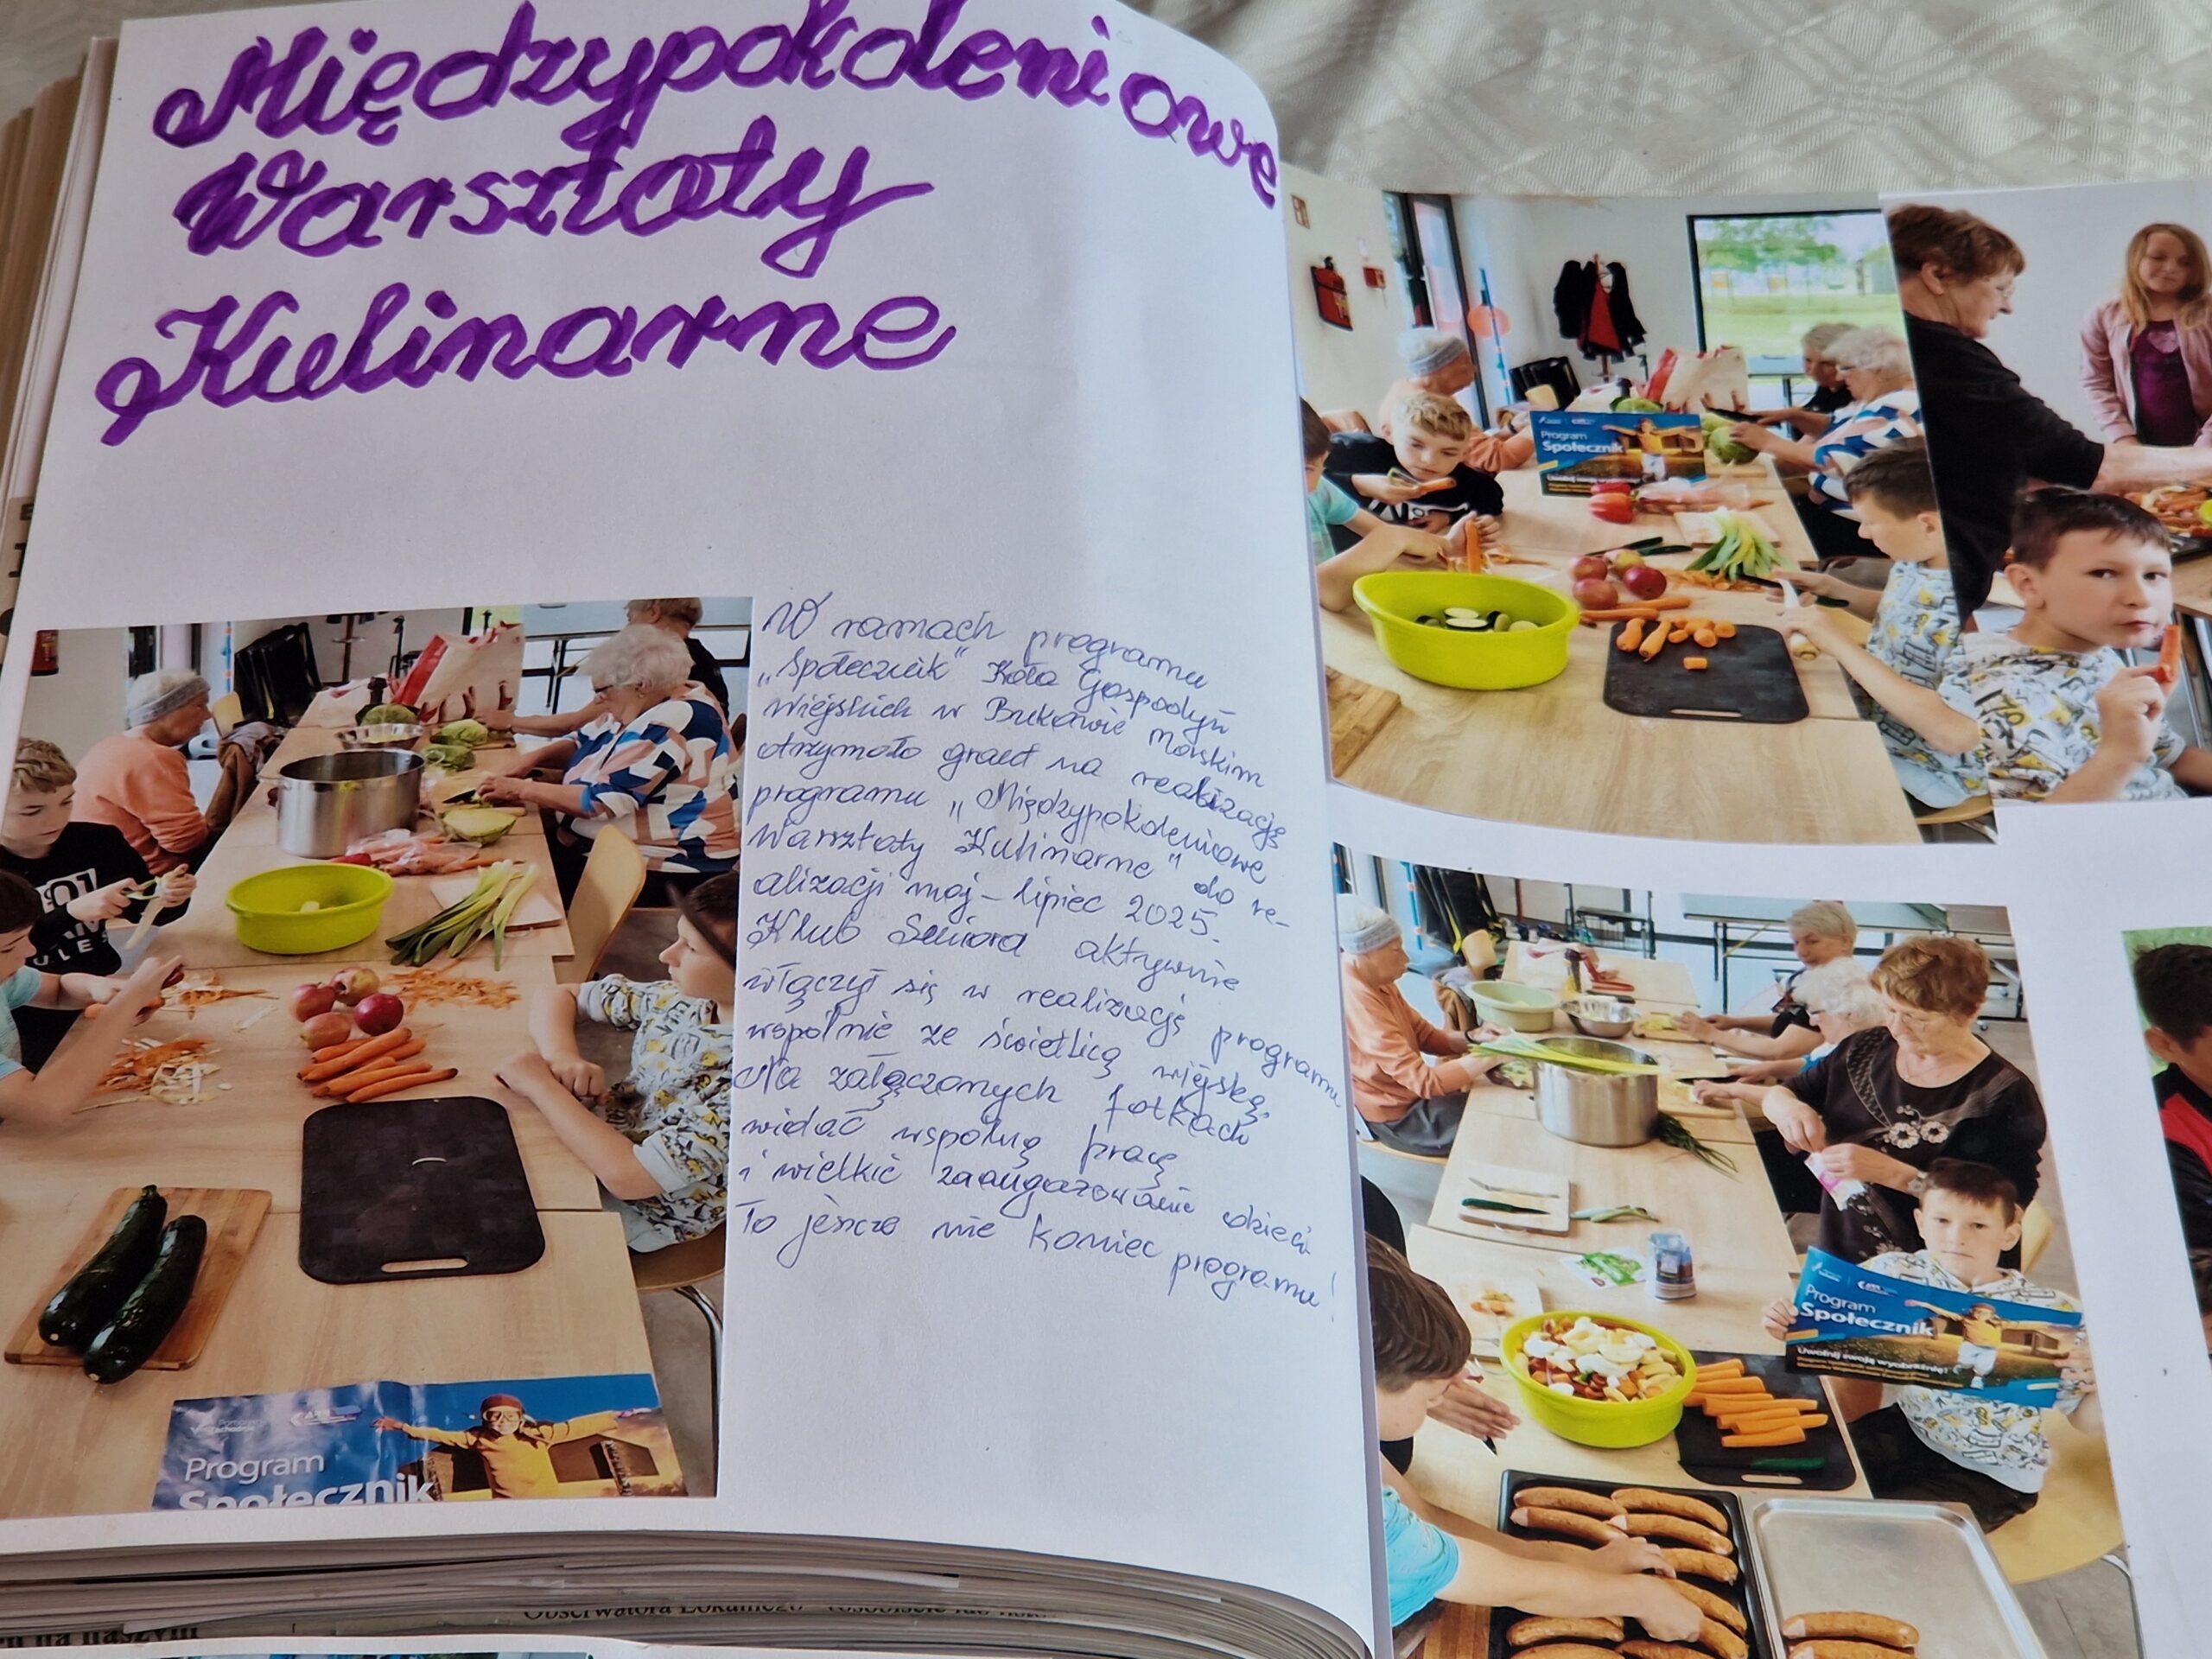 Międzypokoleniowe
Warsztaty
Kulinarne
W ramach programu
„Społecznik" Koło Gospodyń
Wiejskich w Bukowie Morskim
otrzymało grant na realizację
programu „Międzypokoleniowe
Warsztaty Kulinarne" do re-
alizacji maj - lipiec 2025.
Klub Seniora aktywnie
włączył się w realizację programu
wspólnie ze świetlicą wiejską.
Na załączonych fotkach
widać wspólną pracę
i wielkie zaangażowanie dzieci.
To jeszcze nie koniec programu!
Program
Społecznik
Program
Społecznik
Program
Społecznik
Uwolnij swoją wyobraźnię!